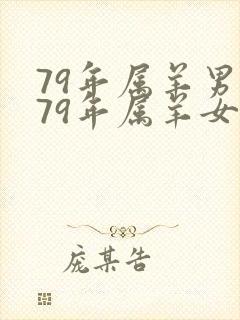 79年属羊男
79年属羊女
庞某告